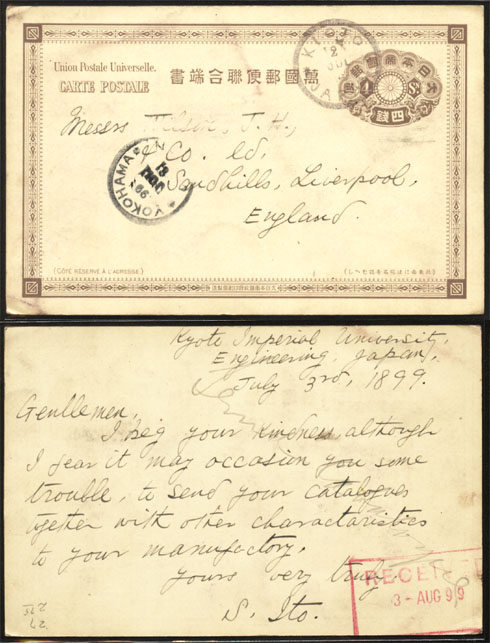 Union Postale Universelle.
CARTE POSTALE
書端合聯便郵國萬
大日本帝國郵便
4 Sn
四錢
KIOTO
JAPAN
Messrs Wilson, J. H.,
& Co. Ld,
Sandhills, Liverpool,
England.
YOKOHAMA JAPAN
(CÔTÉ RÉSERVÉ À L'ADRESSE)
Kyoto Imperial University,
Engineering, Japan,
July 3rd, 1899.
Gentlemen,
I beg your kindness, although
I fear it may occasion you some
trouble, to send your catalogues
together with other characteristics
to your manufactory,
yours very truly,
S. Ito.
3 - AUG 99
27
275